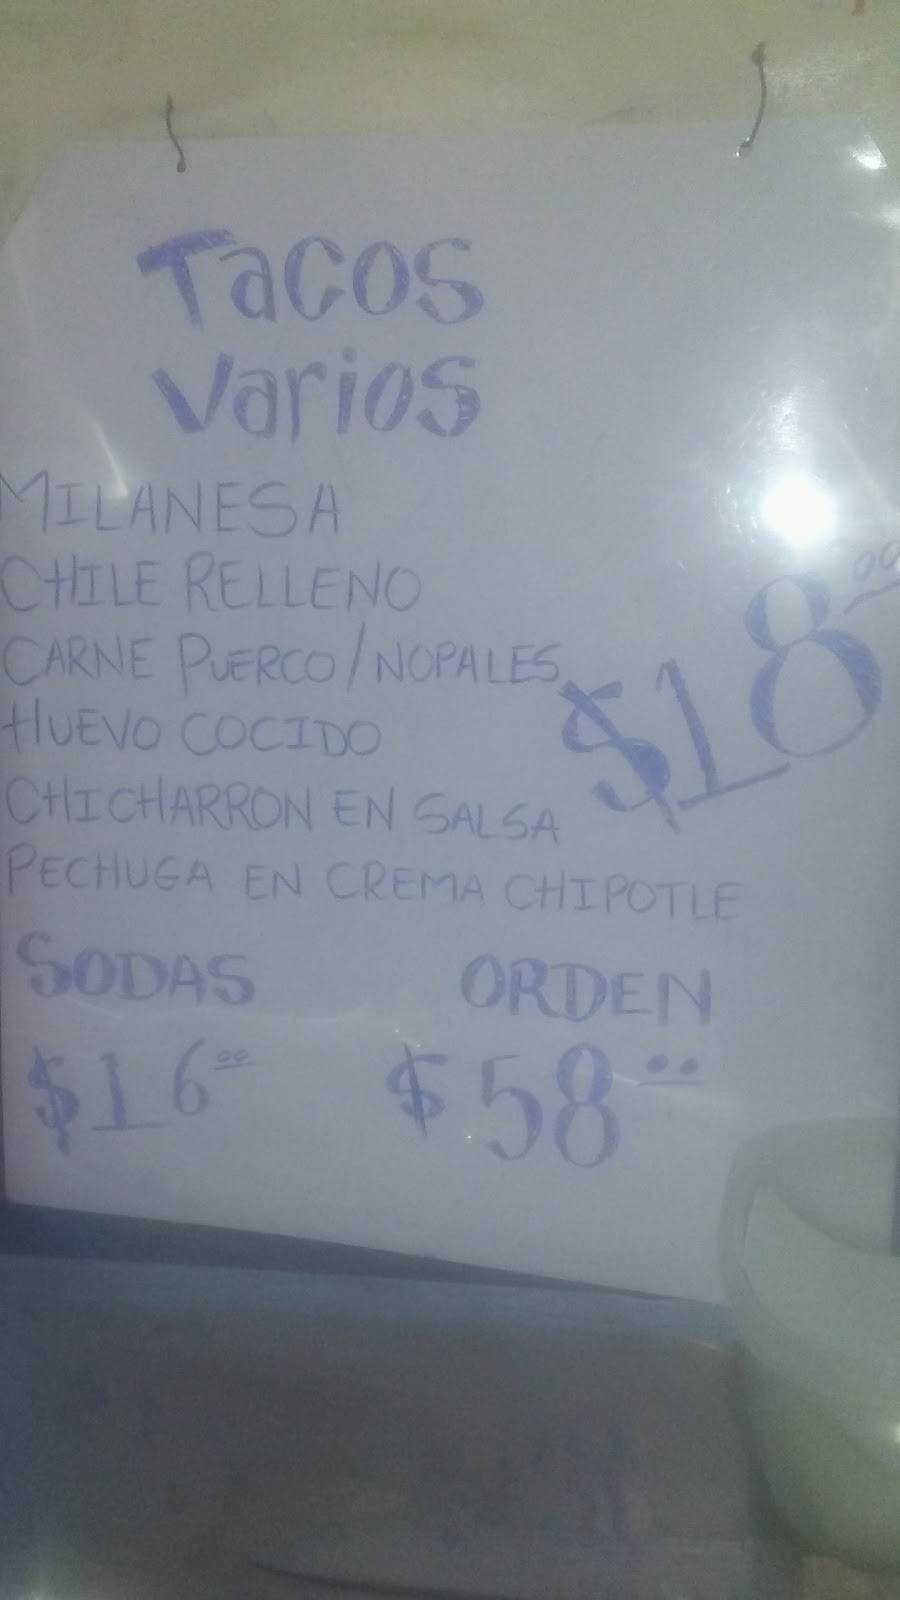 Tacos
Varios
MILANESA
CHILE RELLENO
CARNE PUERCO/NOPALES
HUEVO COCIDO
CHICHARRON EN SALSA
PECHUGA EN CREMA CHIPOTLE
$18.00
SODAS
$16.00
ORDEN
$58..